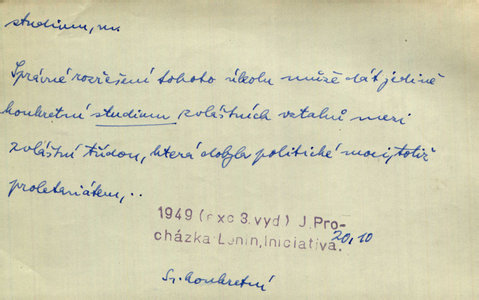 studium, -
Správné rozřešení tohoto úkolu může dát jedině
konkretní studium zvláštních vztahů mezi
zvláštní třídou, která dobyla politické moci, totiž
proletariátem, ..
1949 (exc 3. vyd) J. Pro-
cházka: Lenin, Iniciativa. 20, 10
Sr. konkretní